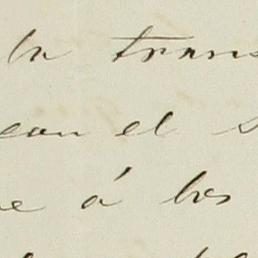 la trans
con el s
e á los